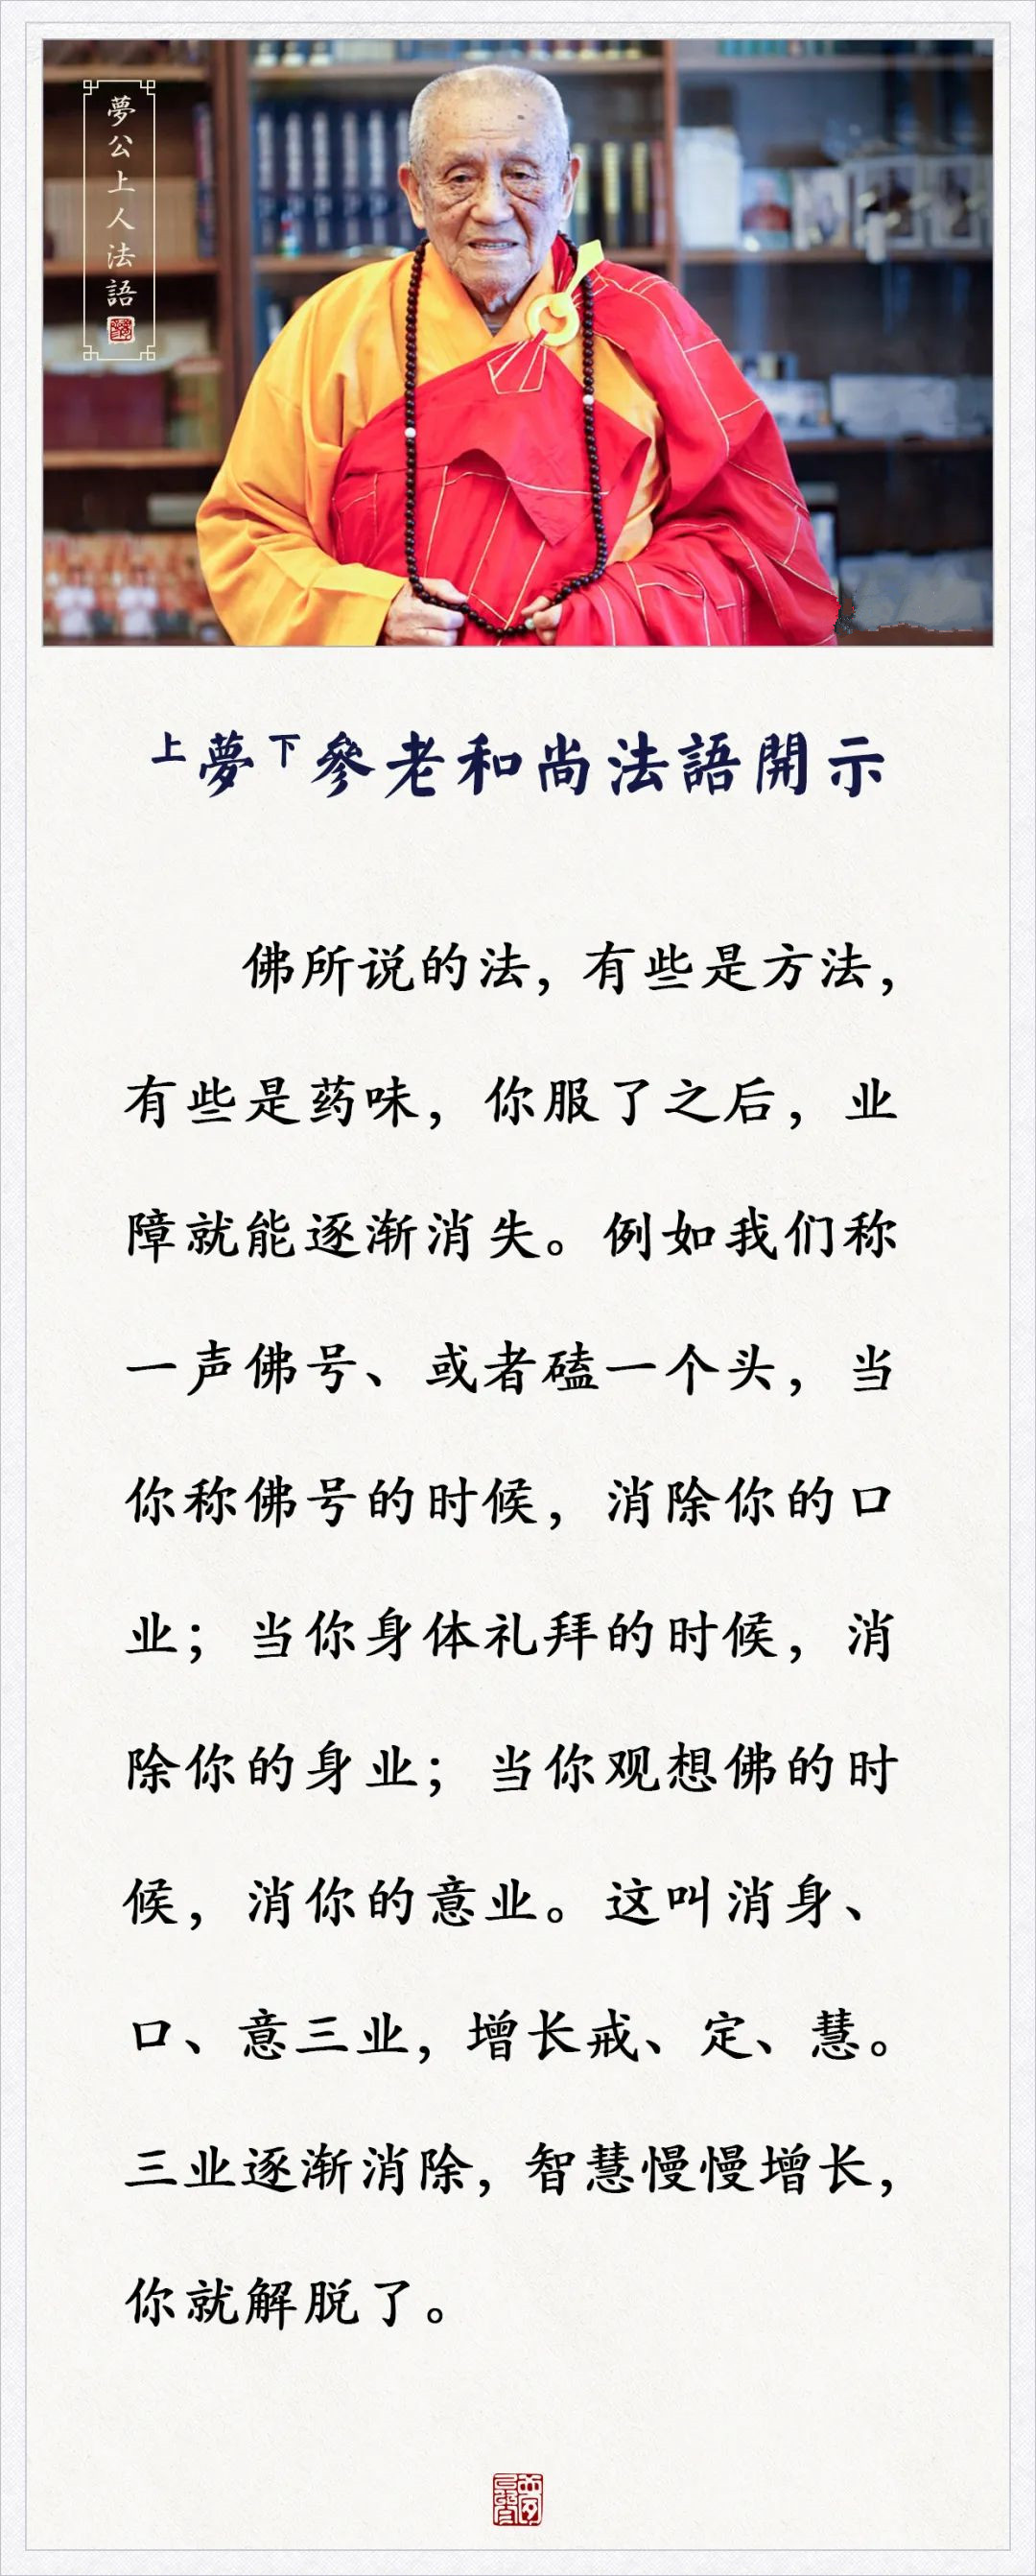 夢公上人法語
上夢下參老和尚法語開示
佛所说的法，有些是方法，
有些是药味，你服了之后，业
障就能逐渐消失。例如我们称
一声佛号、或者磕一个头，当
你称佛号的时候，消除你的口
业；当你身体礼拜的时候，消
除你的身业；当你观想佛的时
候，消你的意业。这叫消身、
口、意三业，增长戒、定、慧。
三业逐渐消除，智慧慢慢增长，
你就解脱了。